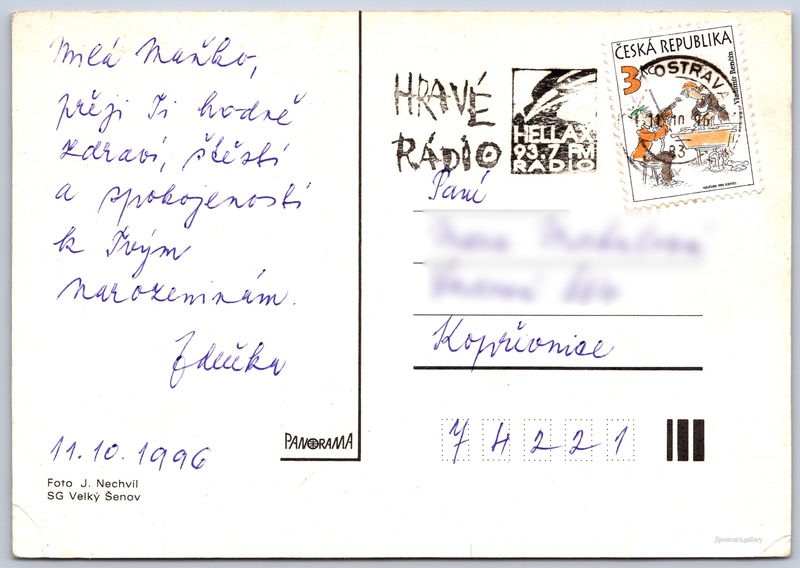 Milá Maňko,
přeji Ti hodně
zdraví, štěstí
a spokojenosti
k Tvým
narozeninám.
Zdeňka
11.10.1996
Foto J. Nechvíl
SG Velký Šenov
PANORAMA
HRAVÉ
RÁDIO
HELLAX
93.7 FM
RADIO
ČESKÁ REPUBLIKA
3 Kč
Vladimír Renčín
OSTRAVA
11.10.96
Paní
Kopřivnice
74221
postcard.gallery